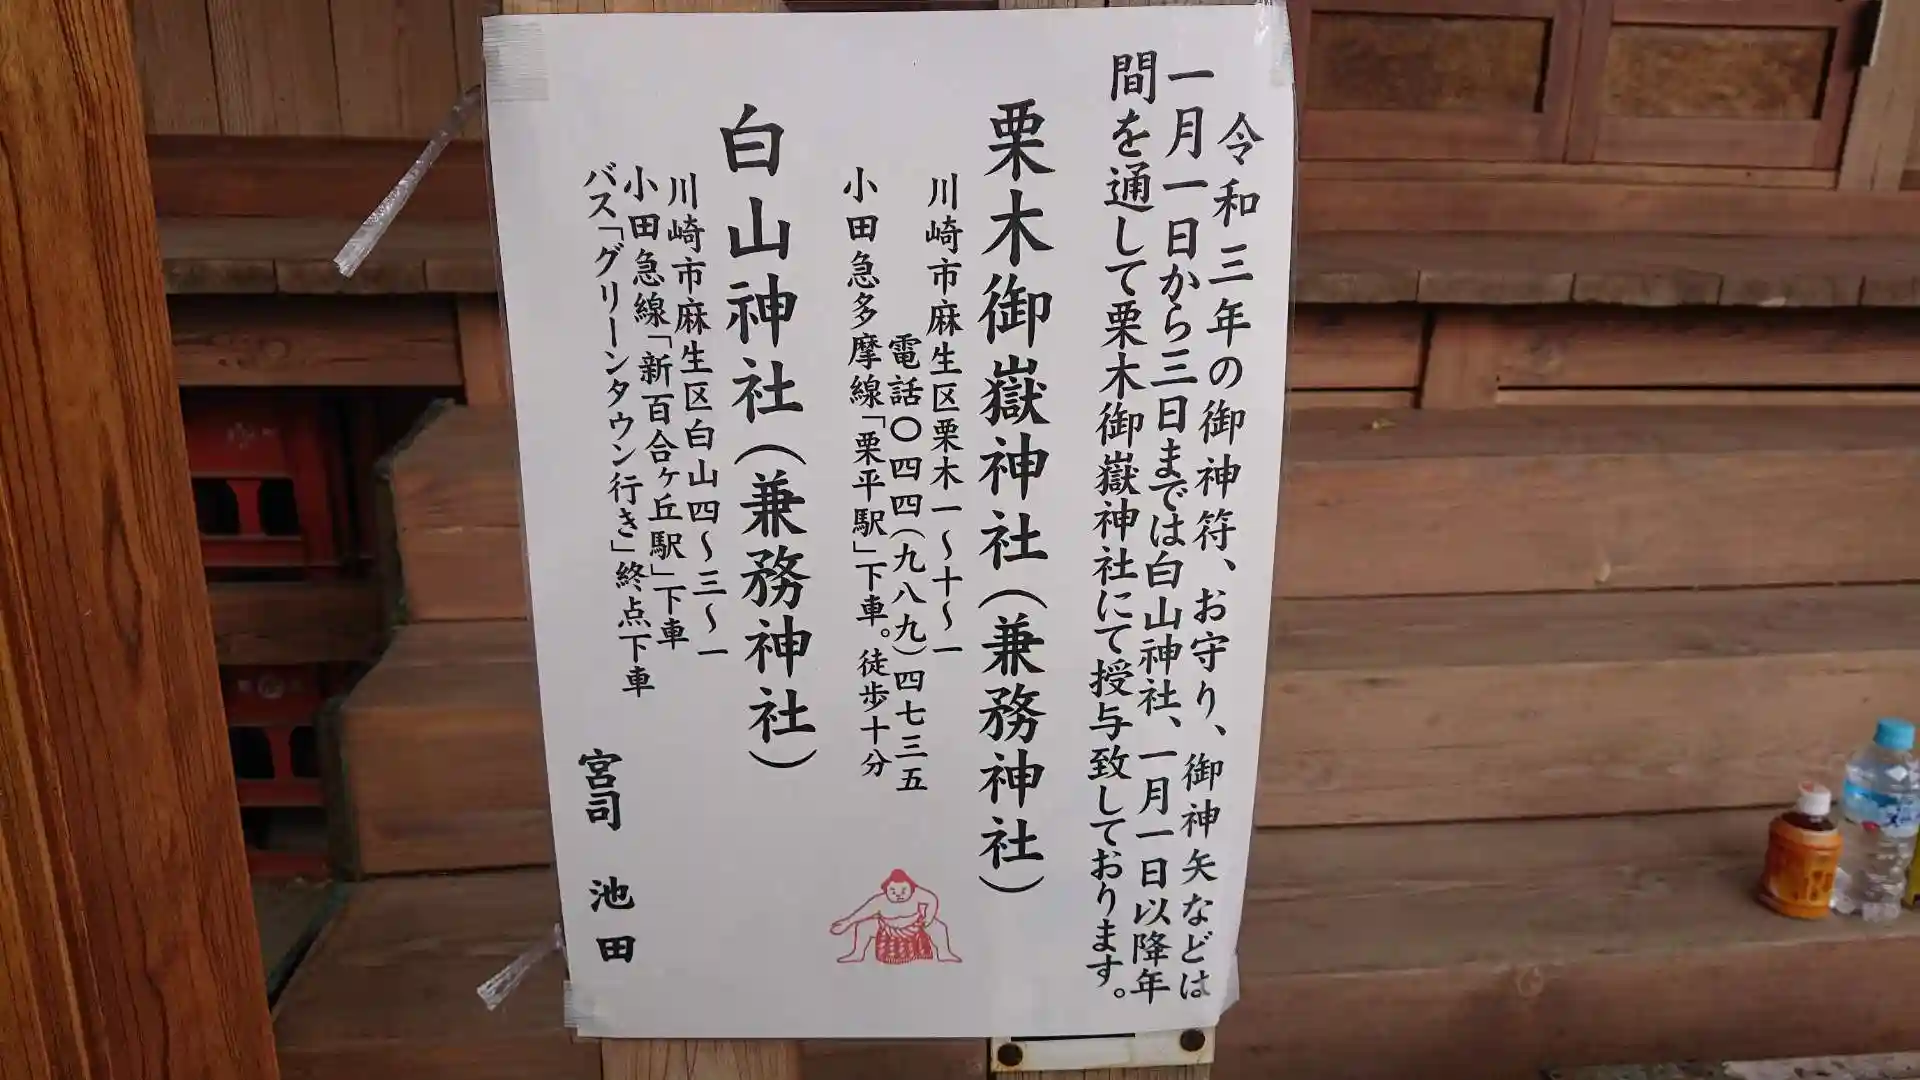 令和三年の御神符、お守り、御神矢などは
一月一日から三日までは白山神社、一月一日以降年
間を通して栗木御嶽神社にて授与致しております。
栗木御嶽神社(兼務神社)
川崎市麻生区栗木一〜十〜一
電話〇四四(九八九)四七三五
小田急多摩線「栗平駅」下車。徒歩十分
白山神社(兼務神社)
川崎市麻生区白山四〜三〜一
小田急線「新百合ヶ丘駅」下車
バス「グリーンタウン行き」終点下車
宮司 池田